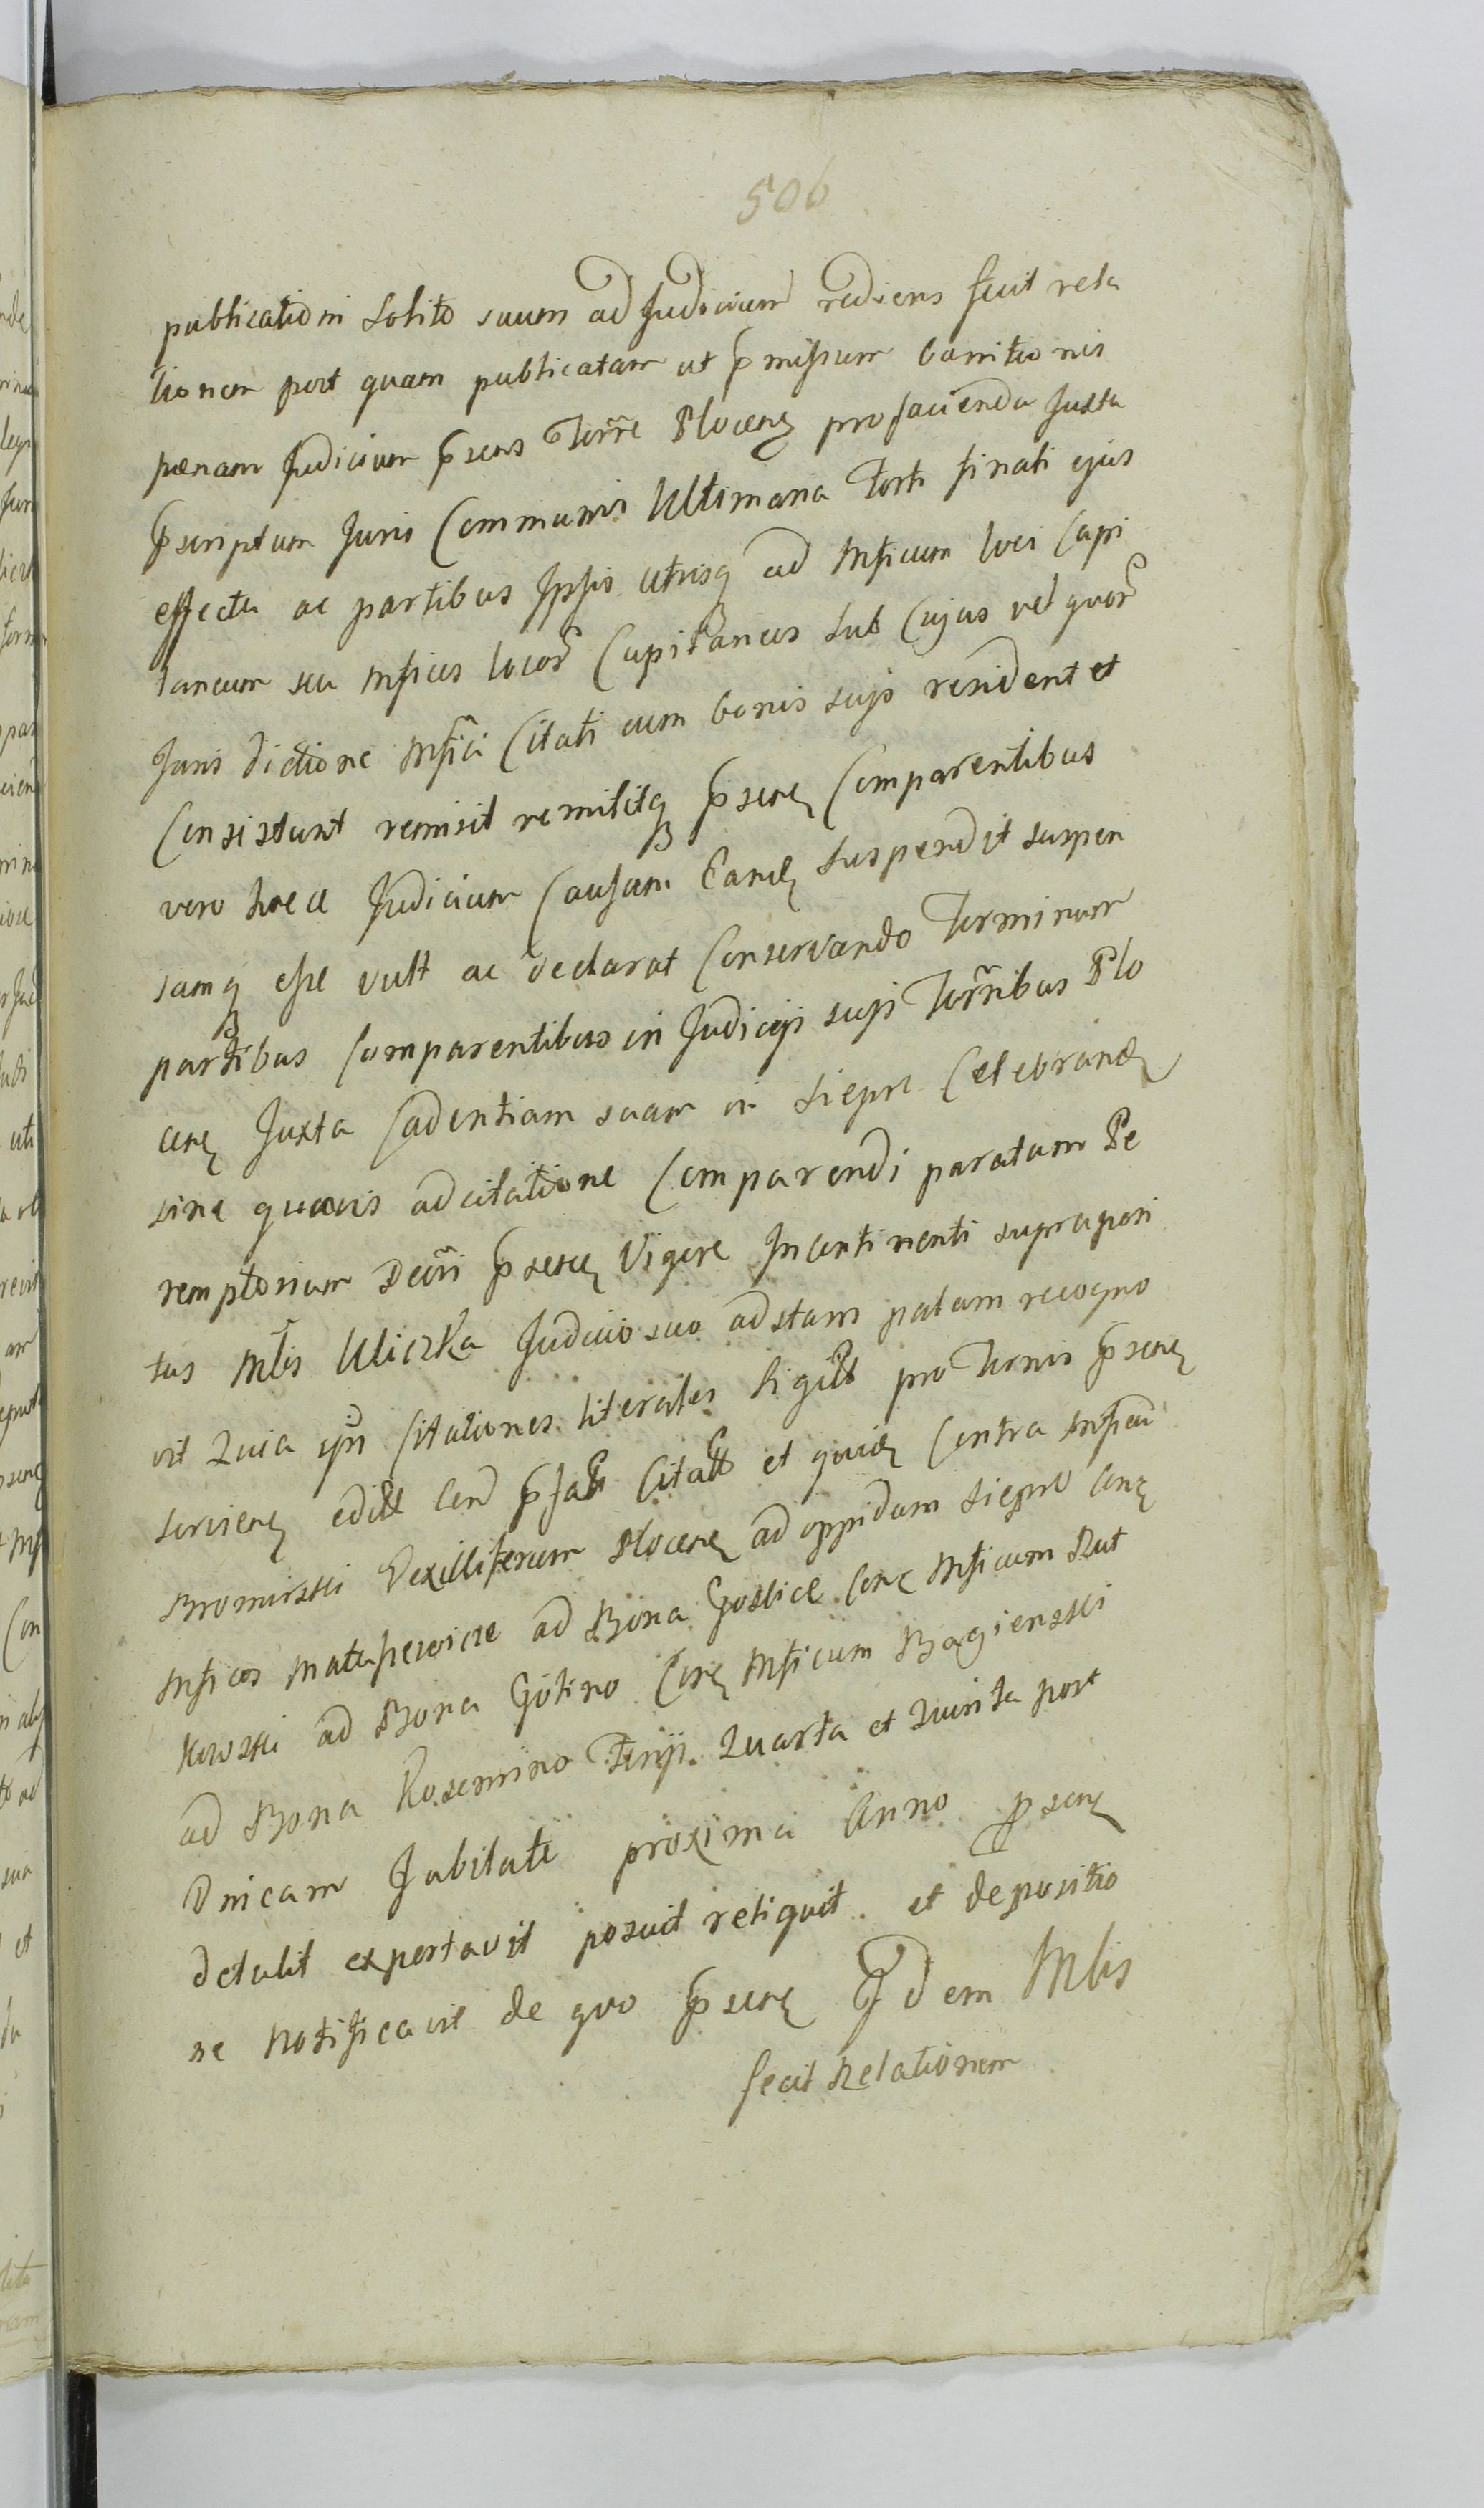 506
publicationi solito suum ad Judicium rediens fecit rela
tionem post quam publicatam ut p̃missum bannitionis
pœnam Judicium p̃sens Terr̃e Plocens profacienda Juxta
p̃scriptum Juris Communis Ultimaria forti finali ejus
effectu ac partibus Ipsis utrisq ad Mficum loci Capi
taneum seu Mficos locor̃ Capitaneos sub Cujus vel quor̃
Juris dictione Mfici Citati cum bonis suis resident et
Consistunt remisit remititq p̃sens Comparentibus
vero hocce Judicium Causam Eand suspendit suspen
samq esse vult ac declarat Conservando Terminum
partibus Comparentibus in Judicijs suis Terr̃ibus Plo
cens Juxta Cadentiam suam in Sierpc Celebrand
sine quavis adcitatione Comparendi paratum Pe
remptorium Decr̃i p̃sens Vigore Incontinenti suprapori
tus Mbis Uliczka Judicio suo adstans palam recogno
vit Quia ipse Citationes literales Sigill pro Ternis p̃sens
serviens edit Cend p̃fat Citat et quid Contra Mficum
Bromirski Vexilliferum Plocens ad oppidum Sierpc Cone
Mficos Małeszewicze ad Bona Gozlice Cone Mficum Rut
kowski ad Bona Gotino Cone Mficum Bagienski
ad Bona Kosemino Ferijs Quarta et Quinta post
Dnicam Jubilate proxima Anno p̃sens
detulit exportavit posuit reliquit et depositio
ne notificavit de quo p̃sens Idem Mbis
fecit Relationem